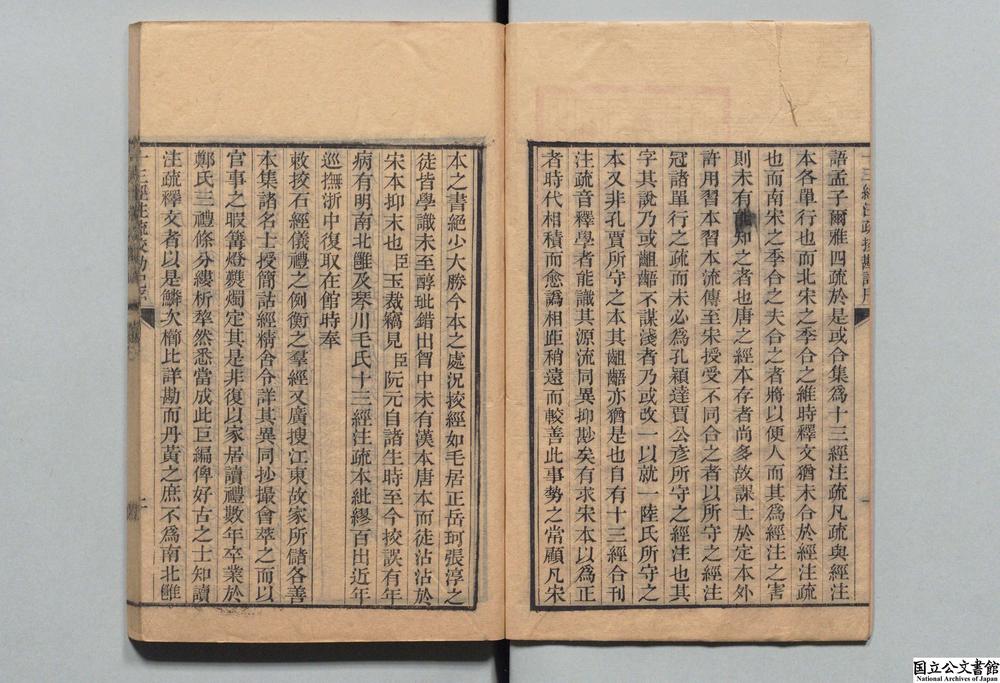 十三經注疏挍勘記序
語孟子爾雅四疏於是或合集爲十三經注疏凡疏與經注
本各單行也而北宋之季合之維時釋文猶未合於經注疏
也而南宋之季合之夫合之者將以便人而其爲經注之害
則未有能知之者也唐之經本存者尚多故課士於定本外
許用習本習本流傳至宋授受不同合之者以所守之經注
冠諸單行之疏而未必爲孔穎達賈公彥所守之經注也其
字其說乃或齟齬不謀淺者乃或改一以就一陸氏所守之
本又非孔賈所守之本其齟齬亦猶是也自有十三經合刊
注疏音釋學者能識其源流同異抑尟矣有求宋本以爲正
者時代相積而愈譌相距稍遠而較善此事勢之當顧凡宋
本之書絕少大勝今本之處況挍經如毛居正岳珂張淳之
徒皆學識未至醇玼錯出胷中未有漢本唐本而徒沾沾於
宋本抑末也臣玉裁竊見臣阮元自諸生時至今挍誤有年
病有明南北雝及琴川毛氏十三經注疏本紕繆百出近年
巡撫浙中復取在館時奉
敕挍石經儀禮之例衡之羣經又廣搜江東故家所儲各善
本集諸名士授簡詁經精舍令詳其異同抄撮會萃之而以
官事之暇篝燈爇燭定其是非復以家居讀禮數年卒業於
鄭氏三禮條分縷析犂然悉當成此巨編俾好古之士知讀
注疏釋文者以是鱗次櫛比詳勘而丹黃之庶不爲南北雝
十三經注疏挍勘記序
国立公文書館
National Archives of Japan